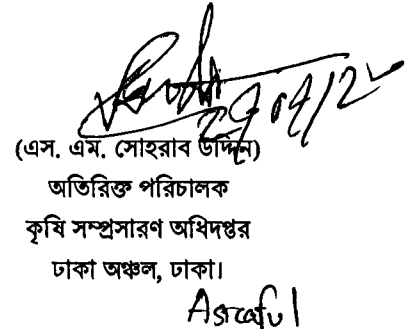 (এস. এম. সোহরাব উদ্দিন)
অতিরিক্ত পরিচালক
কৃষি সম্প্রসারণ অধিদপ্তর
ঢাকা অঞ্চল, ঢাকা।
Asraful